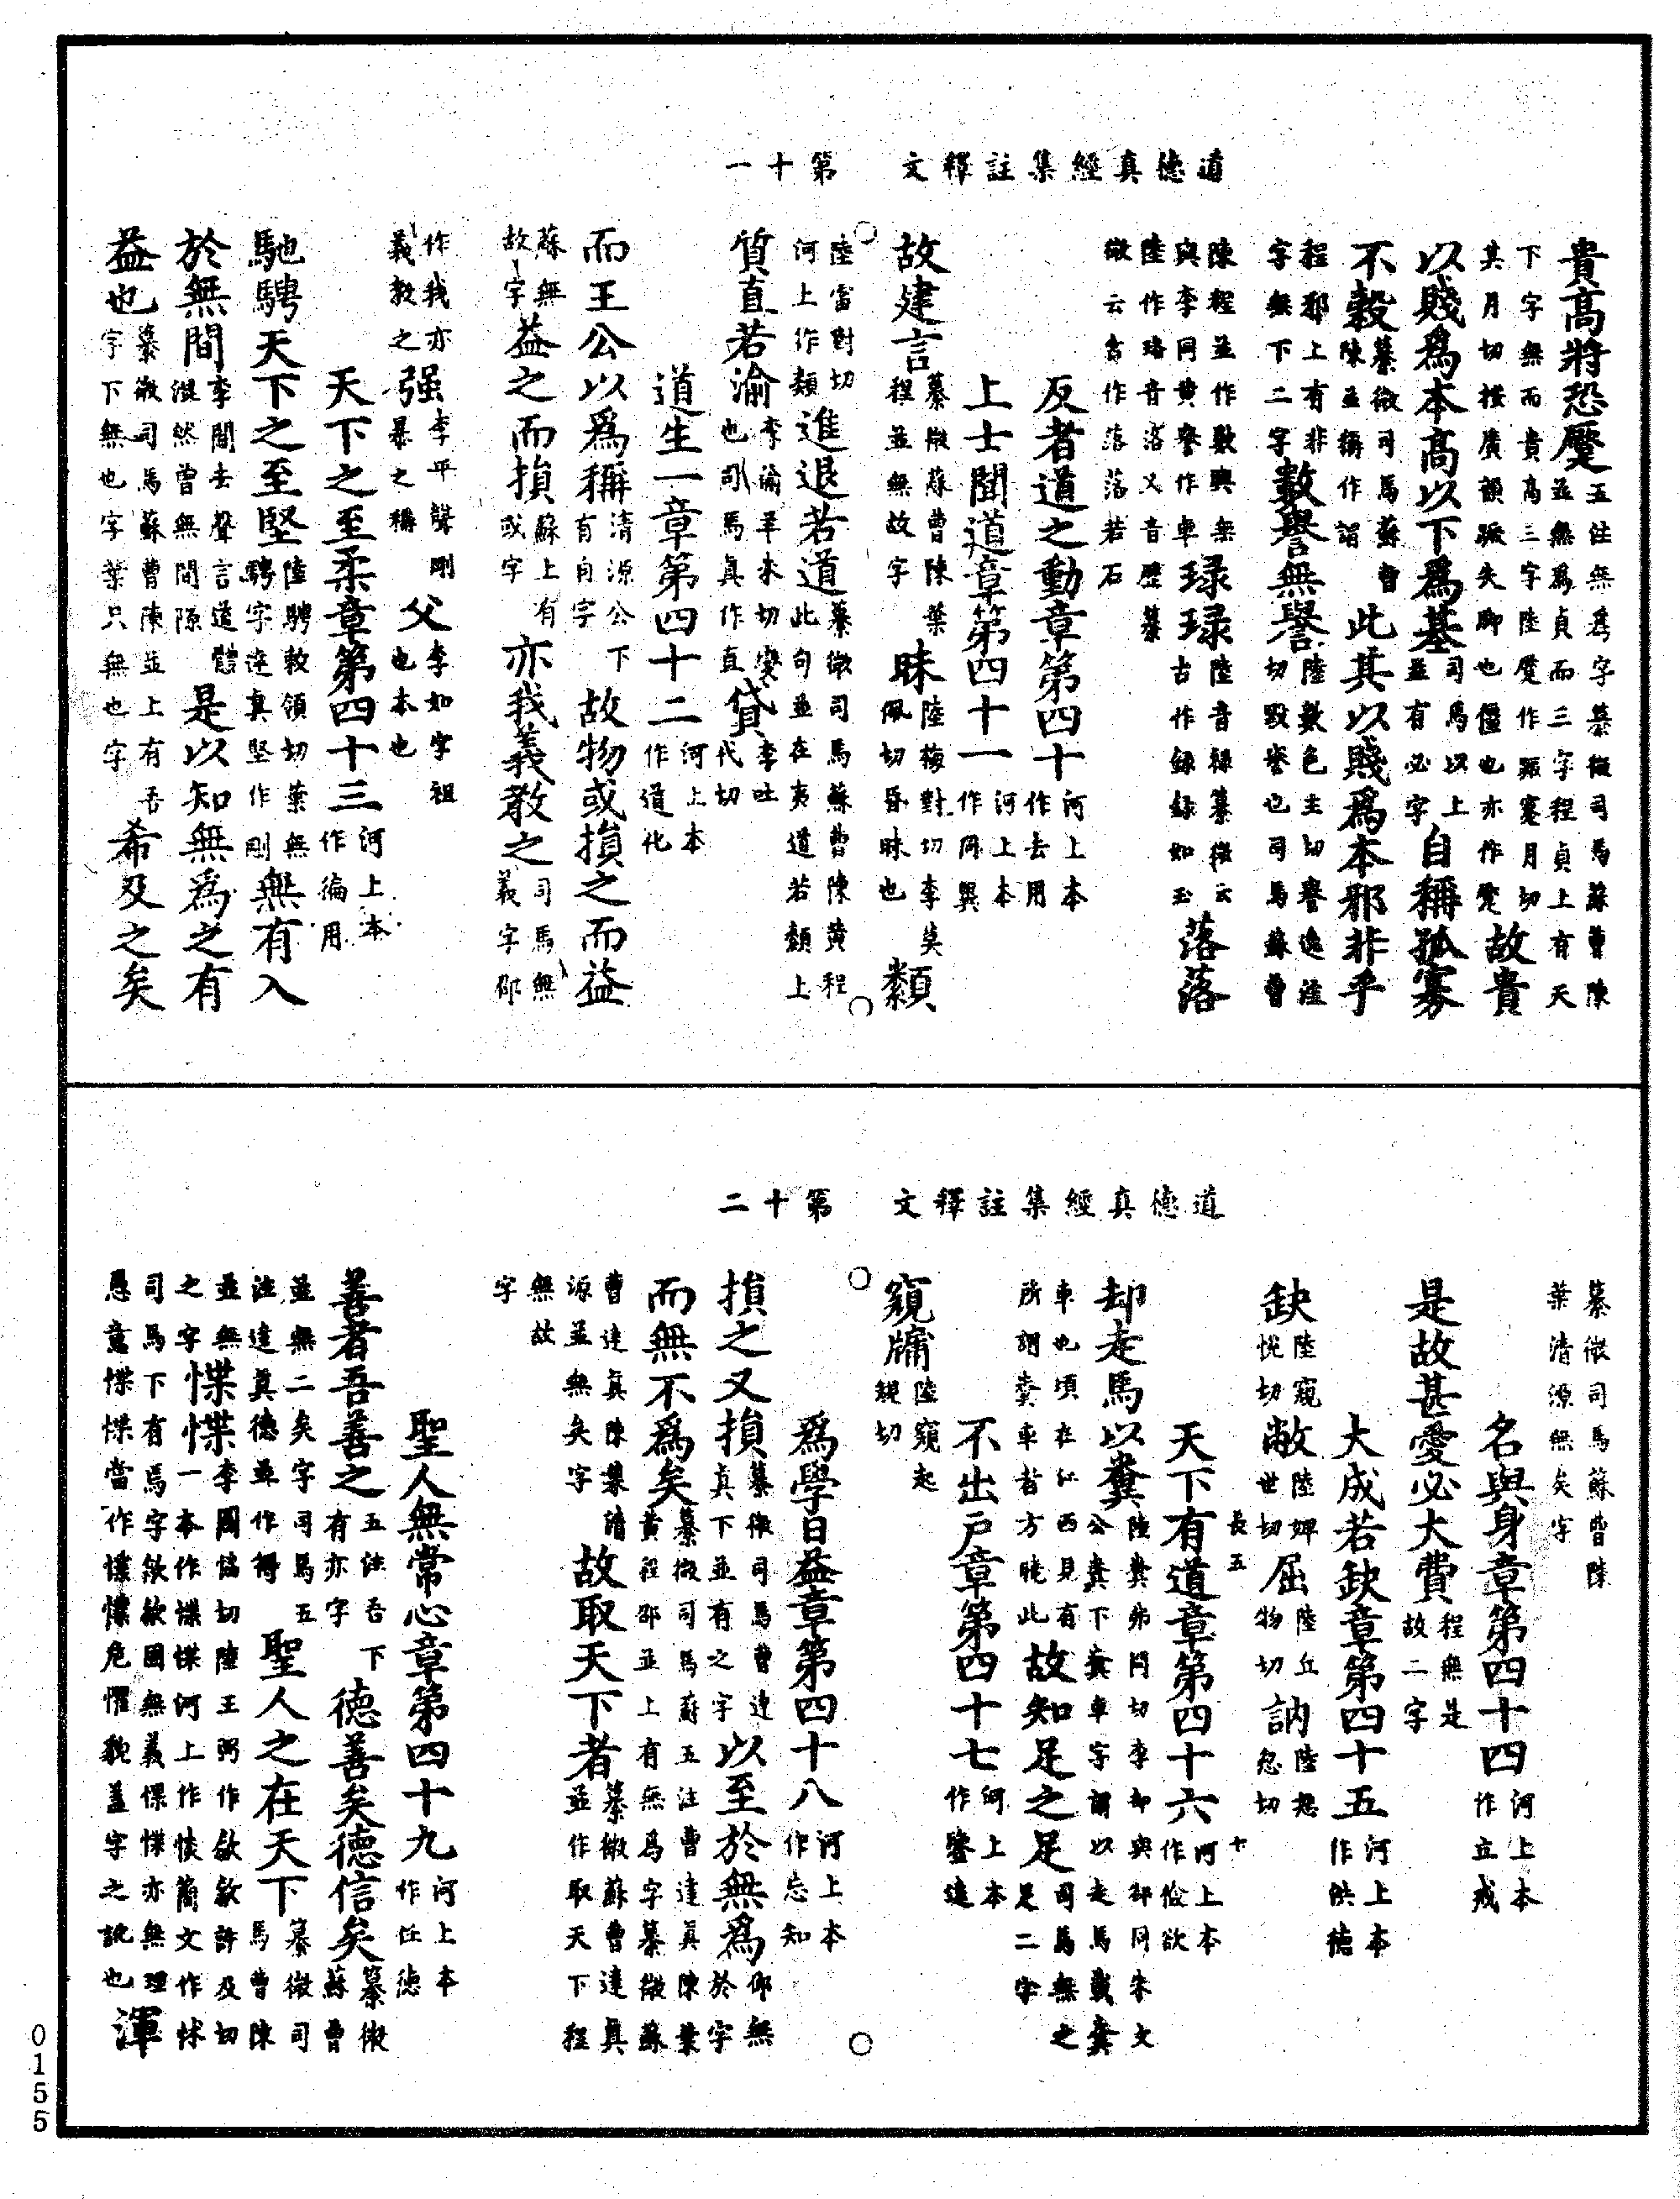 道德真經集註釋文　第十一
貴高將恐蹷五注無為字纂微司馬蘇曹陳並無為貞而三字程貞上有天
下字無而貴高三字陸蹷作蹶蹇月切其月切按廣韻蹶失脚也僵也亦作蹷故貴
以賤為本高以下為基司馬以上並有必字自稱孤寡
不穀纂微司馬蘇曹陳並稱作謂此其以賤為本邪非乎
程邪上有非字無下二字數譽無譽陸數色主切譽逸注切毀譽也司馬蘇曹
陳程並作數輿無輿李同黄譽作車琭琭陸音祿纂微云古作録録如玉落落
陸作珞音洛又音歷纂微云古作落落若石
反者道之動章第四十河上本作去用
上士聞道章第四十一河上本作同異
故建言纂微蘇曹陳葉程並無故字昧陸梅對切李莫佩切昏昧也纇
陸雷對切河上作類進退若道纂微司馬蘇曹陳黄程此句並在夷道若纇上
質直若渝李渝羊朱切變也司馬真作直貸李吐代切
道生一章第四十二河上本作道化
而王公以為稱清源公下有自字故物或損之而益
蘇無故字益之而損蘇上有或字亦我義教之司馬無義字邵
作我亦義教之强李平聲剛暴之稱父李如字祖也本也
天下之至柔章第四十三河上本作徧用
馳騁天下之至堅陸騁敕領切葉無騁字達真堅作剛無有入
於無間李間去聲言道體混然曾無間隙是以知無為之有
益也纂微司馬蘇曹陳並上有吾字下無也字葉只無也字希及之矣
道德真經集註釋文　第十二
纂微司馬蘇曹陳葉清源無矣字
名與身章第四十四河上本作立戒
是故甚愛必大費程無是故二字
大成若缺章第四十五河上本作洪德
缺陸窺悅切敝陸婢世切屈陸丘物切訥陸怒忽切
長五　十
天下有道章第四十六河上本作儉欲
却走馬以糞陸糞弗問切李却與卻同朱文公糞下糞車字謂以走馬載糞
車也頃在江西見有所謂糞車者方曉此故知足之足司馬無之足二字
不出戶章第四十七河上本作鑒遠
窺牖陸窺起規切
為學日益章第四十八河上本作忘知
損之又損纂微司馬曹達真下並有之字以至於無為邵無於字
而無不為矣纂微司馬蘇五注曹達真陳葉黄程邵並上有無為字纂微蘇
曹達真陳葉清源並無矣字故取天下者纂微蘇曹達真並作取天下程
無故字
聖人無常心章第四十九河上本作任德
善者吾善之五注吾下有亦字德善矣德信矣纂微蘇曹
並無二矣字司馬五注達真德並作得聖人之在天下纂微司馬曹陳
並無之字惵惵李圖協切陸王弼作歙歙許及切一本作惵惵河上作怢簡文作怵
司馬下有焉字歙歙國無義惵惵亦無理愚意惵惵當作慄慄危懼貌蓋字之訛也渾
0155